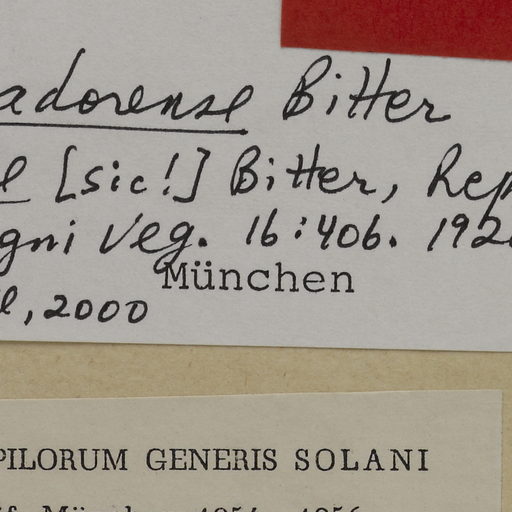 adorense Bitter
[sic!] Bitter, Rep
gni Veg. 16:406. 192
München
, 2000
PILORUM GENERIS SOLANI